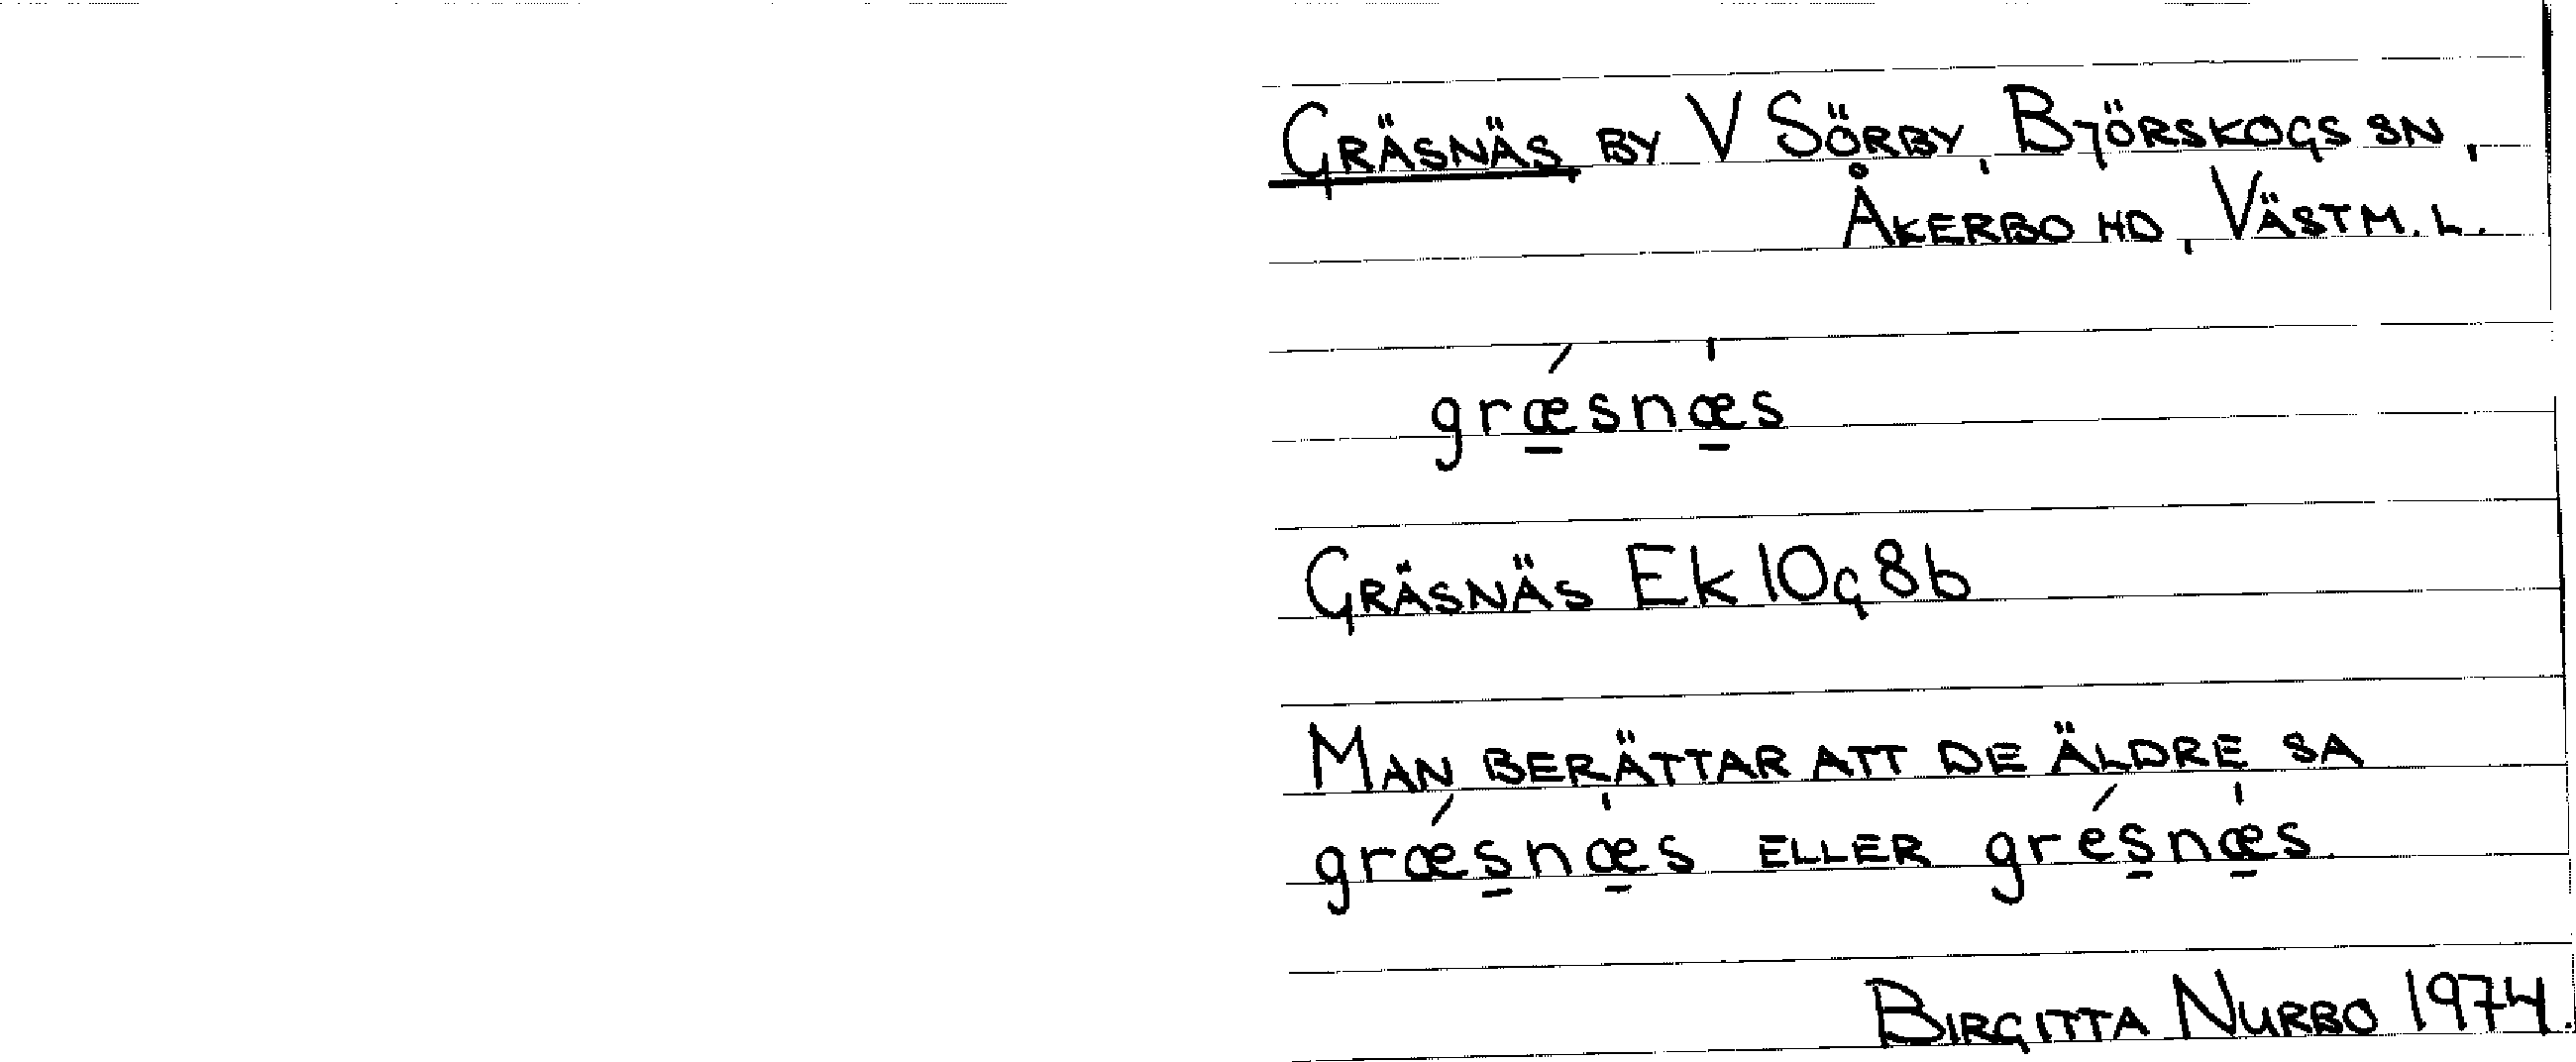 GRÄSNÄS, BY V SÖRBY, BJÖRSKOGS SN,
ÅKERBO HD, VÄSTM. L.
grǽ̠snæ̠̍s
GRÄSNÄS Ek 10g8b
MAN BERÄTTAR ATT DE ÄLDRE SA
grǽs̠næ̠̍s ELLER grés̠næ̠̍s.
BIRGITTA NURBO 1974.